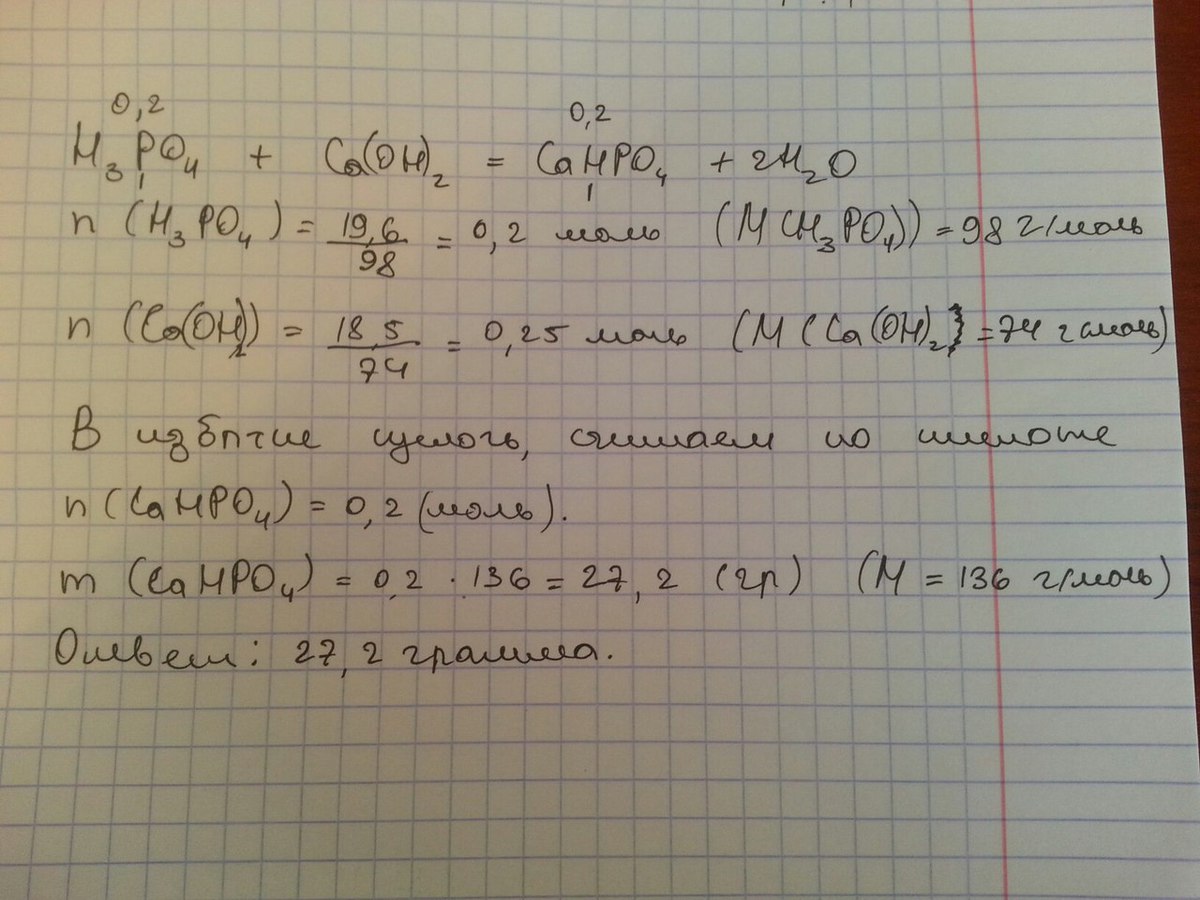 0,2 0,2
H₃PO₄ + Ca(OH)₂ = CaHPO₄ + 2H₂O
1 1
n (H₃PO₄) = 19,6/98 = 0,2 моль (M(H₃PO₄)) = 98 г/моль
n (Ca(OH)₂) = 18,5/74 = 0,25 моль (M(Ca(OH)₂} = 74 г/моль)
В избытке щелочь, считаем по кислоте
n(CaHPO₄) = 0,2 (моль).
m (CaHPO₄) = 0,2 · 136 = 27,2 (гр) (M = 136 г/моль)
Ответ: 27,2 грамма.